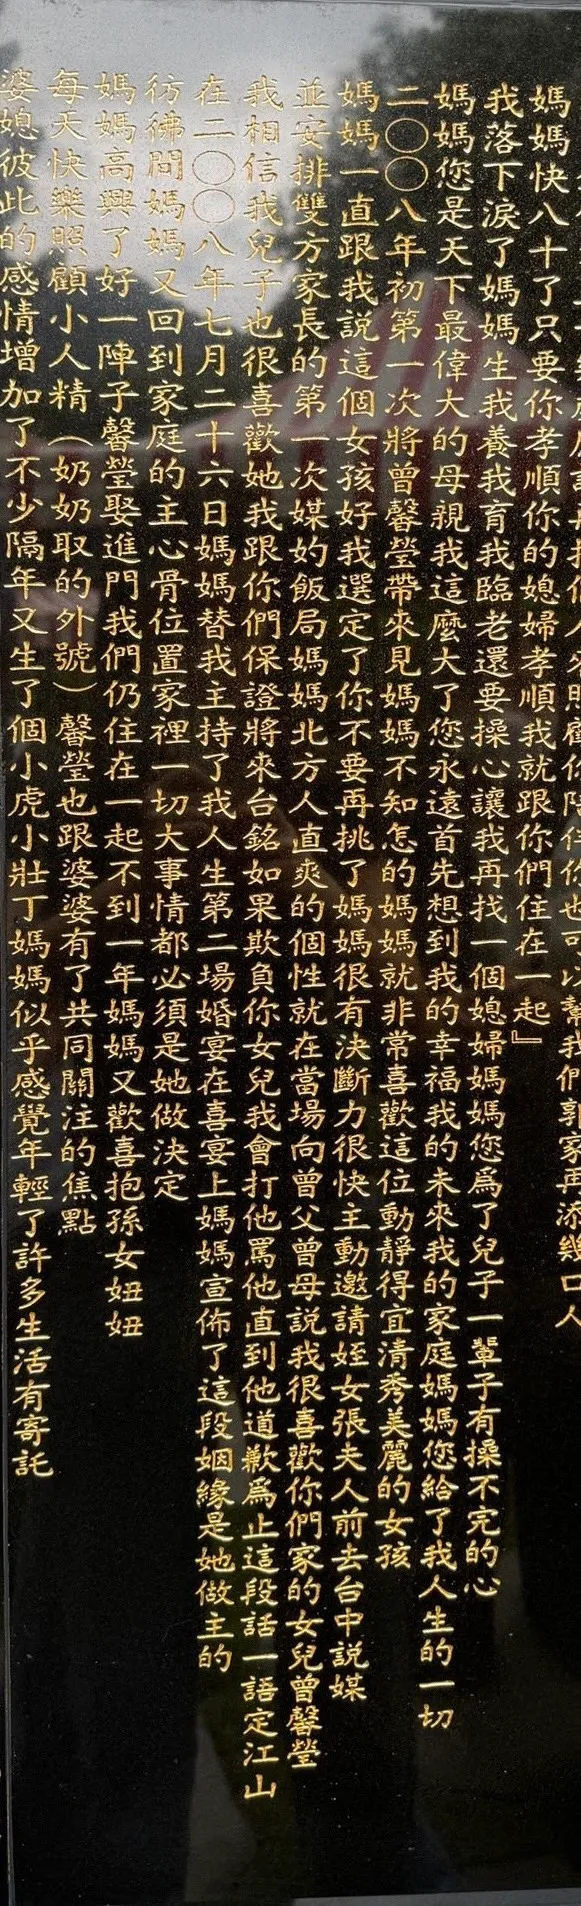 再找個人來照顧你陪伴你也可以幫我們郭家再添幾口人
媽媽快八十了只要你孝順你的媳婦孝順我就跟你們住在一起』
我落下淚了媽媽生我養我育我臨老還要操心讓我再找一個媳婦媽媽您為了兒子一輩子有操不完的心
媽媽您是天下最偉大的母親我這麼大了您永遠首先想到我的幸福我的未來我的家庭媽媽您給了我人生的一切
二〇〇八年初第一次將曾馨瑩帶來見媽媽不知怎的媽媽就非常喜歡這位動靜得宜清秀美麗的女孩
媽媽一直跟我說這個女孩好我選定了你不要再挑了媽媽很有決斷力很快主動邀請姪女張夫人前去台中說媒
並安排雙方家長的第一次媒妁飯局媽媽北方人直爽的個性就在當場向曾父曾母說我很喜歡你們家的女兒曾馨瑩
我相信我兒子也很喜歡她我跟你們保證將來台銘如果欺負你女兒我會打他罵他直到他道歉為止這段話一語定江山
在二〇〇八年七月二十六日媽媽替我主持了我人生第二場婚宴在喜宴上媽媽宣佈了這段姻緣是她做主的
彷彿間媽媽又回到家庭的主心骨位置家裡一切大事情都必須是她做決定
媽媽高興了好一陣子馨瑩娶進門我們仍住在一起不到一年媽媽又歡喜抱孫女妞妞
每天快樂照顧小人精（奶奶取的外號）馨瑩也跟婆婆有了共同關注的焦點
婆媳彼此的感情增加了不少隔年又生了個小虎小壯丁媽媽似乎感覺年輕了許多生活有寄託